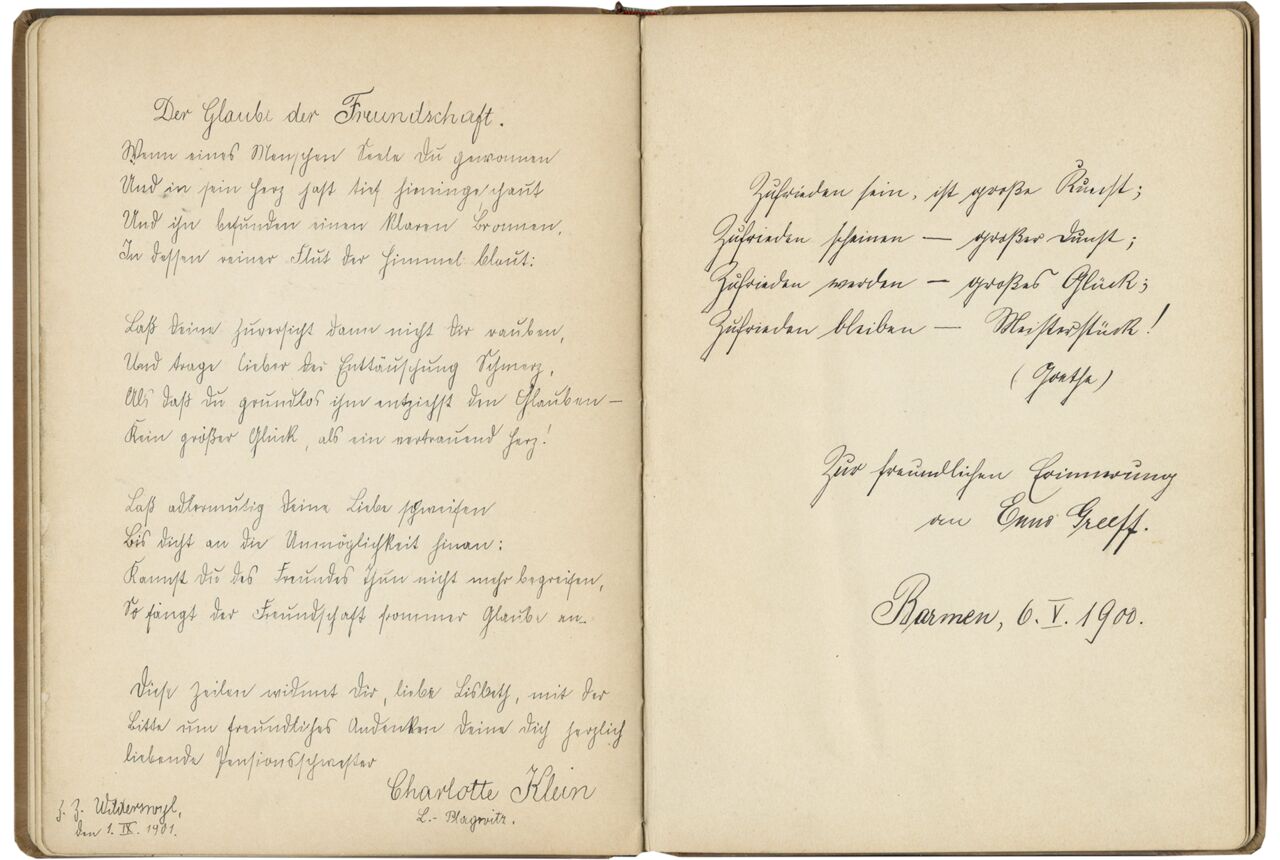 Der Glaube der Freundschaft.
Wenn eines Menschen Seele du gewonnen
Und in sein Herz hast tief hineingeschaut
Und ihn befunden einen klaren Bronnen,
In dessen reiner Flut der Himmel blaut:
Laß deine Zuversicht dann nicht dir rauben,
Und trage lieber der Enttäuschung Schmerz,
Als daß du grundlos ihm entziehst den Glauben –
Kein größer Glück, als ein vertrauend Herz!
Laß adlermutig deine Liebe schweifen
Bis dicht an die Unmöglichkeit hinan:
Kannst du des Freundes Thun nicht mehr begreifen,
So fängt der Freundschaft frommer Glaube an.
Diese Zeilen widmet Dir, liebe Lisbeth, mit der
Bitte um freundliches Andenken deine dich herzlich
liebende Pensionsschwester
Charlotte Klein
L.- Plagwitz.
z. Z. Wilderswyl,
den 1. IX. 1901.
Zufrieden sein, ist große Kunst;
Zufrieden scheinen – großer Dunst;
Zufrieden werden – großes Glück;
Zufrieden bleiben – Meisterstück!
(Goethe)
Zur freundlichen Erinnerung
an Enno Greeff.
Barmen, 6. V. 1900.